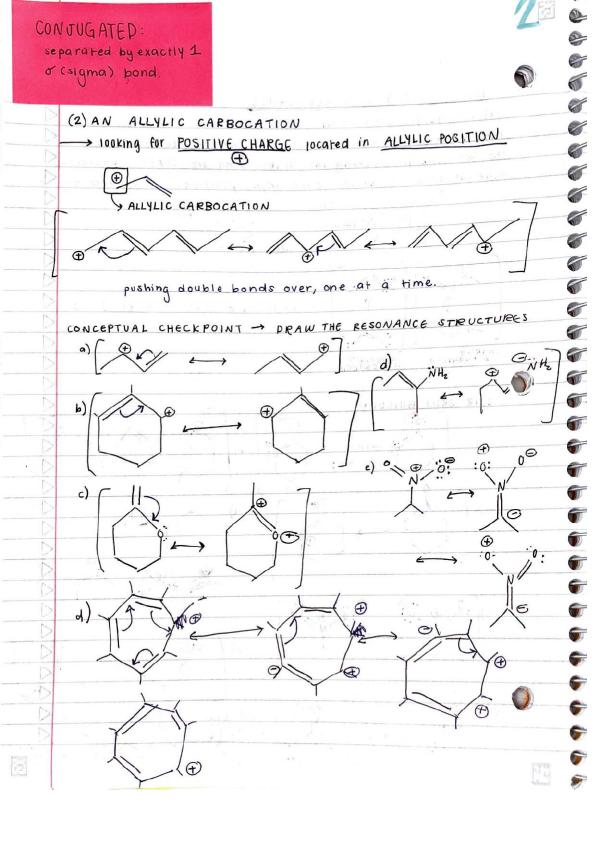 CONJUGATED:
separated by exactly 1
σ (sigma) bond.
2
(2) AN ALLYLIC CARBOCATION
→ looking for POSITIVE CHARGE located in ALLYLIC POSITION
⊕
⊕
↳ ALLYLIC CARBOCATION
⊕ ↔ ⊕ ↔ ⊕
pushing double bonds over, one at a time.
CONCEPTUAL CHECKPOINT → DRAW THE RESONANCE STRUCTURES
a) ⊕ ↔ ⊕
d) N̈H₂ ↔ ⊕ ⊖ N̈H₂
b) ⊕ ↔ ⊕
e) O ⊕ N O ⊖ ↔ ⊕ O N O ⊖ ⊖
c) O ↔ ⊕ O ⊖
↔ ⊕ O N O ⊖
d) ⊕ ↔ ⊕ ⊖ ⊕ ↔ ⊖ ⊕ ⊕
⊕